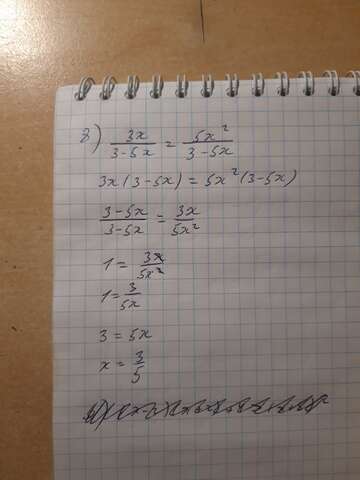 8) 3x/(3-5x) = 5x²/(3-5x)
3x(3-5x) = 5x²(3-5x)
(3-5x)/(3-5x) = 3x/5x²
1 = 3x/5x²
1 = 3/5x
3 = 5x
x = 3/5